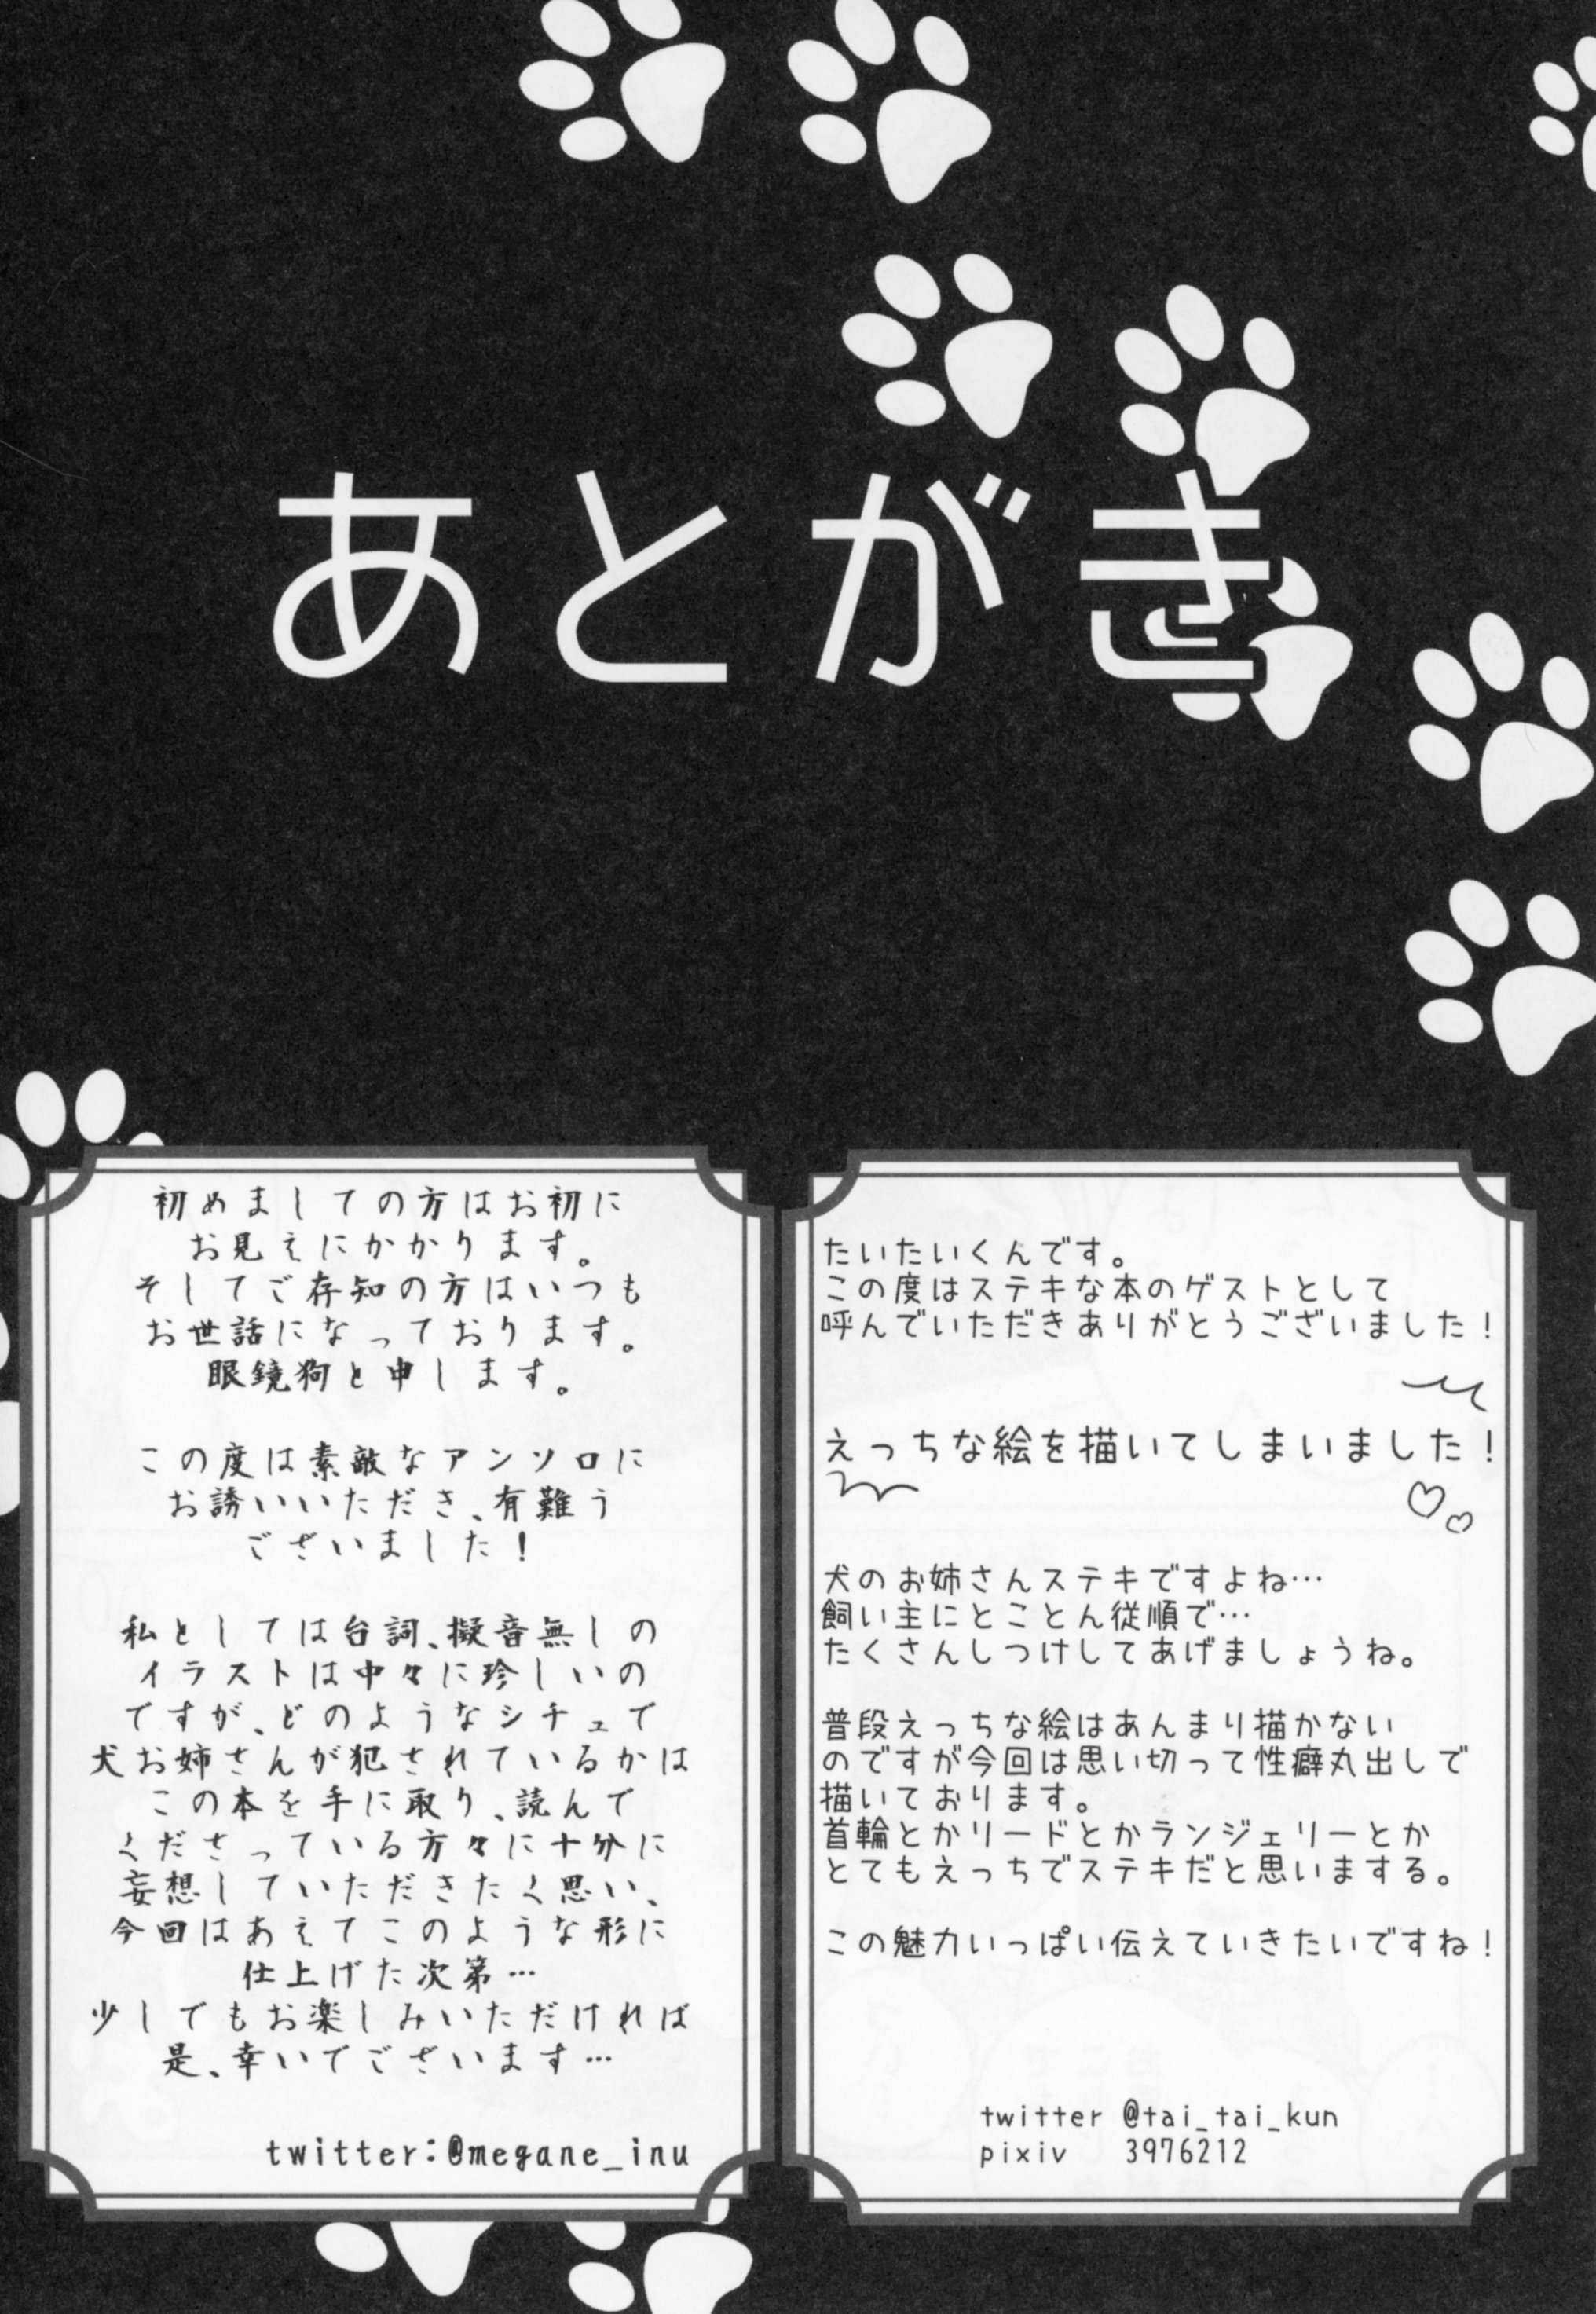 あとがき
初めましての方はお初に
お見えにかかります。
そしてご存知の方はいつも
お世話になっております。
眼鏡狗と申します。
この度は素敵なアンソロに
お誘いいただき、有難う
ございました！
私としては台詞、擬音無しの
イラストは中々に珍しいの
ですが、どのようなシチュで
犬お姉さんが犯されているかは
この本を手に取り、読んで
くださっている方々に十分に
妄想していただきたく思い、
今回はあえてこのような形に
仕上げた次第…
少しでもお楽しみいただければ
是、幸いでございます…
twitter:@megane_inu
たいたいくんです。
この度はステキな本のゲストとして
呼んでいただきありがとうございました！
えっちな絵を描いてしまいました！
犬のお姉さんステキですよね…
飼い主にとことん従順で…
たくさんしつけしてあげましょうね。
普段えっちな絵はあんまり描かない
のですが今回は思い切って性癖丸出しで
描いております。
首輪とかリードとかランジェリーとか
とてもえっちでステキだと思いまする。
この魅力いっぱい伝えていきたいですね！
twitter @tai_tai_kun
pixiv 3976212